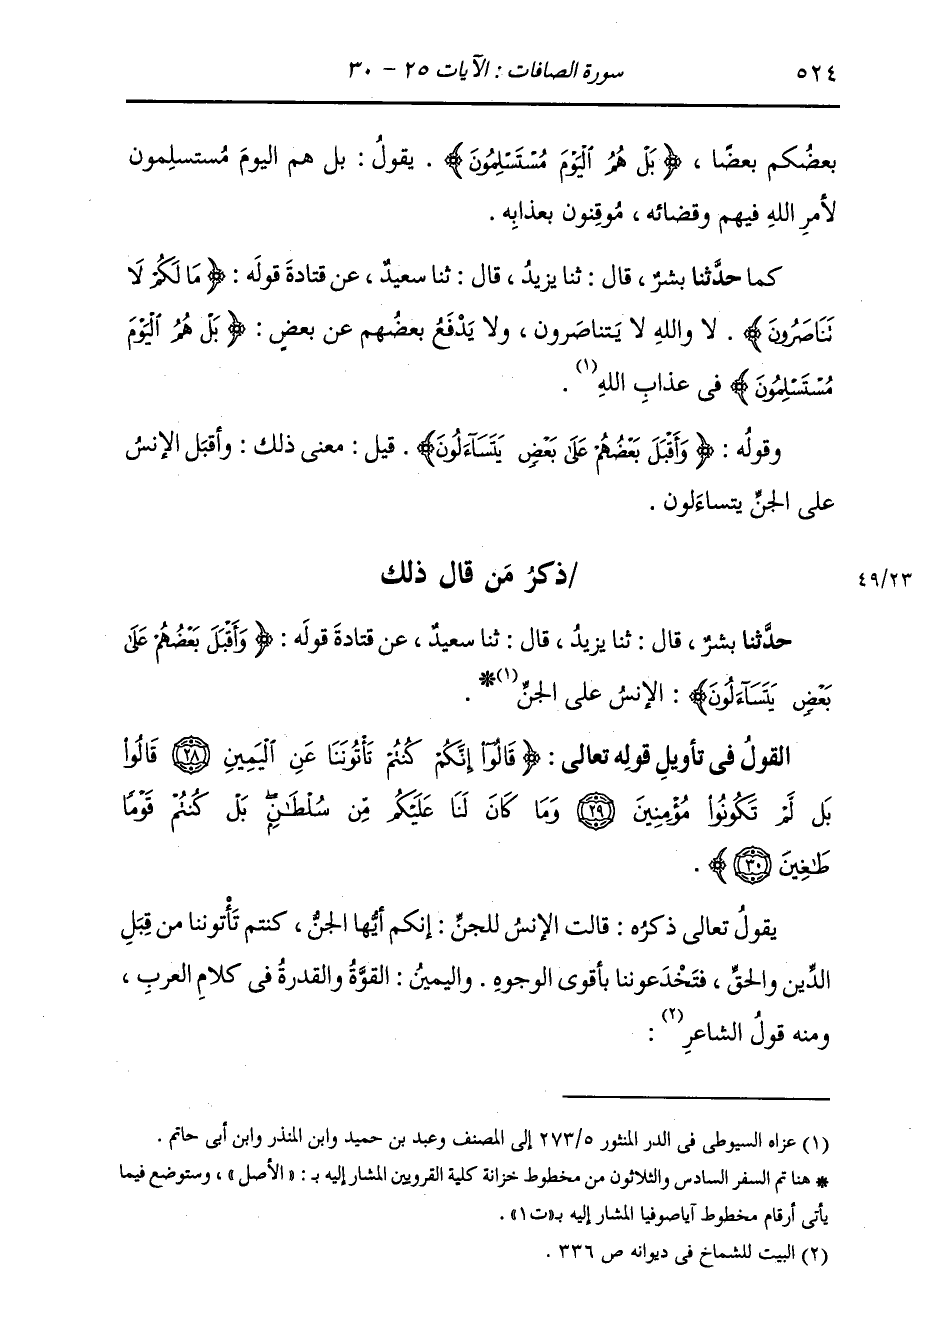 ٥٢٤ سورة الصافات : الآيات ٢٥ - ٣٠
بعضُكم بعضًا ، ﴿ بَلْ هُمُ ٱلْيَوْمَ مُسْتَسْلِمُونَ ﴾ . يقولُ : بل هم اليومَ مُستسلِمون
لأمرِ اللهِ فيهم وقضائه ، مُوقِنون بعذابِه .
كما حدَّثنا بشرٌ ، قال : ثنا يزيدُ ، قال : ثنا سعيدٌ ، عن قتادةَ قولَه : ﴿ مَا لَكُمْ لَا
تَنَاصَرُونَ ﴾ . لا واللهِ لا يَتناصَرون ، ولا يَدْفَعُ بعضُهم عن بعضٍ : ﴿ بَلْ هُمُ ٱلْيَوْمَ
مُسْتَسْلِمُونَ ﴾ فى عذابِ اللهِ(١) .
وقولُه : ﴿ وَأَقْبَلَ بَعْضُهُمْ عَلَىٰ بَعْضٍ يَتَسَآءَلُونَ﴾ . قيل : معنى ذلك : وأقبَل الإنسُ
على الجنِّ يتساءَلون .
/ذكرُ مَن قال ذلك ٤٩/٢٣
حدَّثنا بشرٌ ، قال : ثنا يزيدُ ، قال : ثنا سعيدٌ ، عن قتادةَ قولَه : ﴿ وَأَقْبَلَ بَعْضُهُمْ عَلَىٰ
بَعْضٍ يَتَسَآءَلُونَ﴾ : الإنسُ على الجنِّ(١)* .
القولُ فى تأويلِ قولِه تعالى : ﴿ قَالُوٓا۟ إِنَّكُمْ كُنتُمْ تَأْتُونَنَا عَنِ ٱلْيَمِينِ ٢٨ قَالُوا۟
بَل لَّمْ تَكُونُوا۟ مُؤْمِنِينَ ٢٩ وَمَا كَانَ لَنَا عَلَيْكُم مِّن سُلْطَـٰنٍۭ ۖ بَلْ كُنتُمْ قَوْمًا
طَـٰغِينَ ٣٠ ﴾ .
يقولُ تعالى ذكرُه : قالت الإنسُ للجنِّ : إنكم أيُّها الجنُّ ، كنتم تَأْتوننا من قِبَلِ
الدِّين والحقِّ ، فتَخْدَعوننا بأقوى الوجوهِ . واليمينُ : القوَّةُ والقدرةُ فى كلامِ العربِ ،
ومنه قولُ الشاعرِ(٢) :
(١) عزاه السيوطى فى الدر المنثور ٢٧٣/٥ إلى المصنف وعبد بن حميد وابن المنذر وابن أبى حاتم .
* هنا تم السفر السادس والثلاثون من مخطوط خزانة كلية القرويين المشار إليه بـ : «الأصل» ، وستوضع فيما
يأتى أرقام مخطوط آياصوفيا المشار إليه بـ«ت١» .
(٢) البيت للشماخ فى ديوانه ص ٣٣٦ .